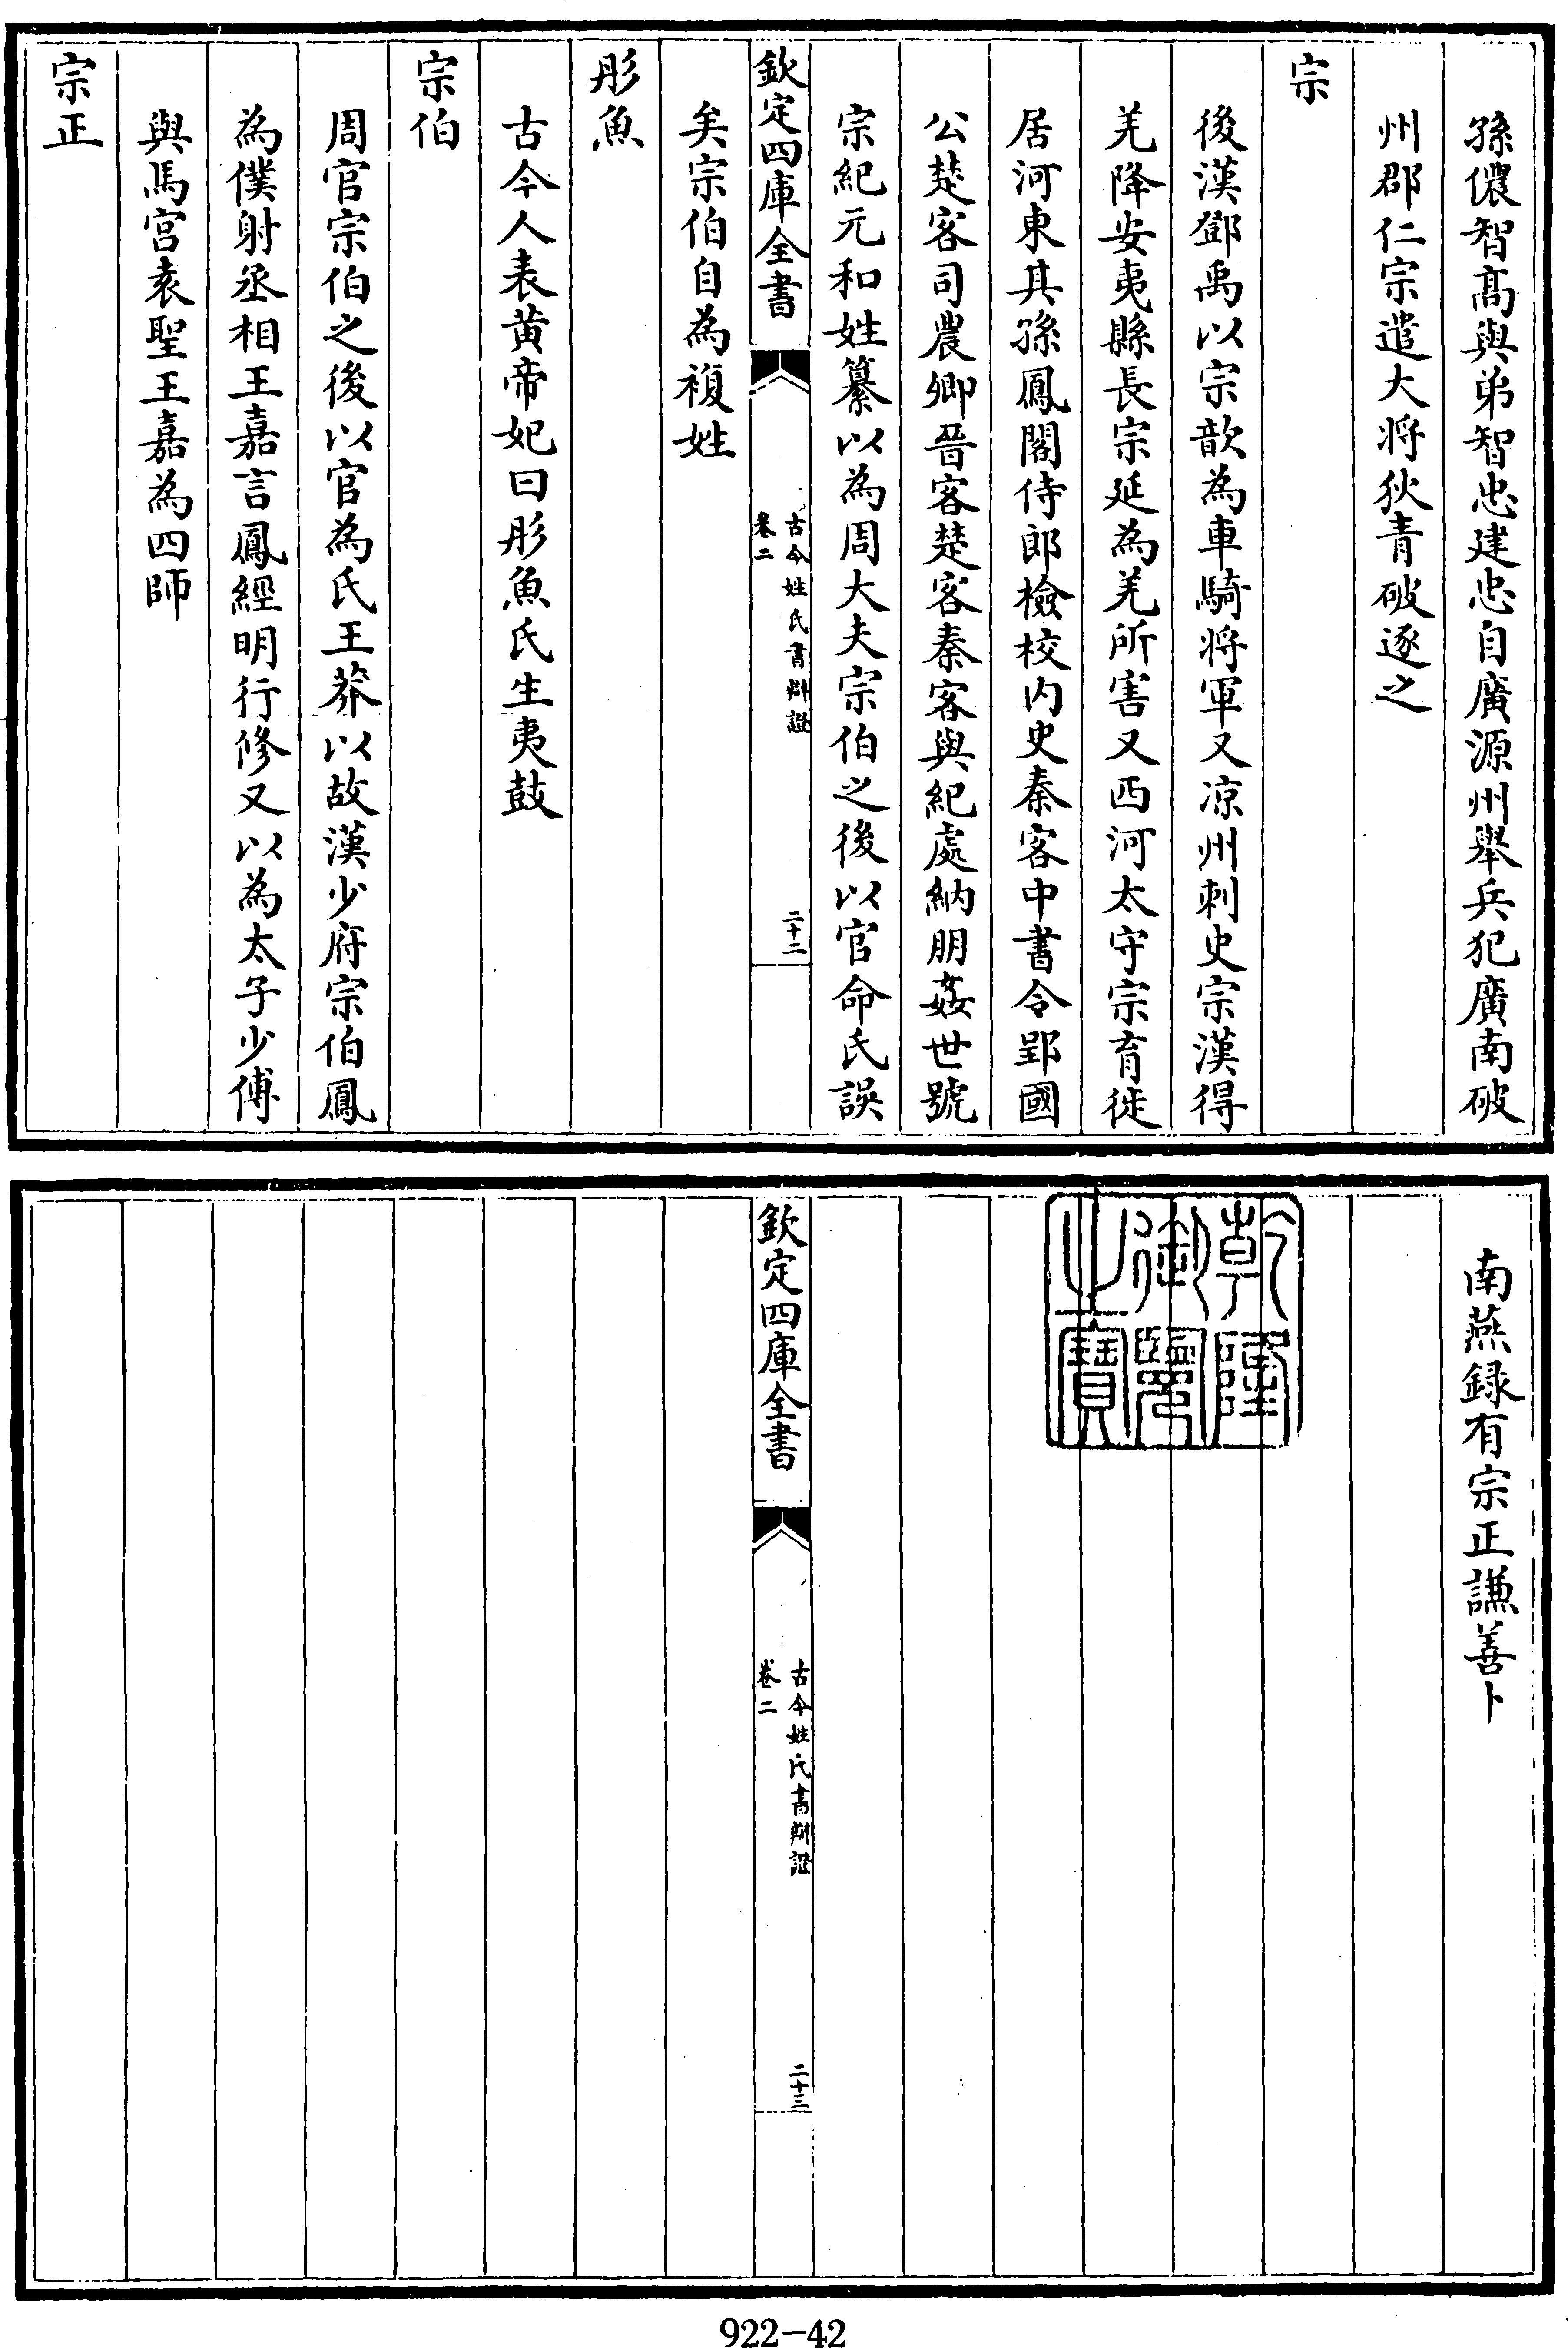 孫儂智髙與弟智忠建忠自廣源州舉兵犯廣南破
州郡仁宗遣大将狄青破逐之
宗
後漢鄧禹以宗歆為車騎将軍又凉州刺史宗漢得
羌降安夷縣長宗延為羌所害又西河太守宗育徙
居河東其孫鳳閣侍郎檢校内史秦客中書令郢國
公楚客司農卿晉客楚客秦客與紀處納朋姦世號
宗紀元和姓纂以為周大夫宗伯之後以官命氏誤
欽定四庫全書
古今姓氏書辯證
卷二
二十二
矣宗伯自為複姓
彤魚
古今人表黄帝妃曰彤魚氏生夷鼓
宗伯
周官宗伯之後以官為氏王莽以故漢少府宗伯鳳
為僕射丞相王嘉言鳳經明行修又以為太子少傅
與馬宫袁聖王嘉為四師
宗正
南燕録有宗正謙善卜
乾隆
御覽
之寶
欽定四庫全書
古今姓氏書辯證
卷二
二十三
922-42